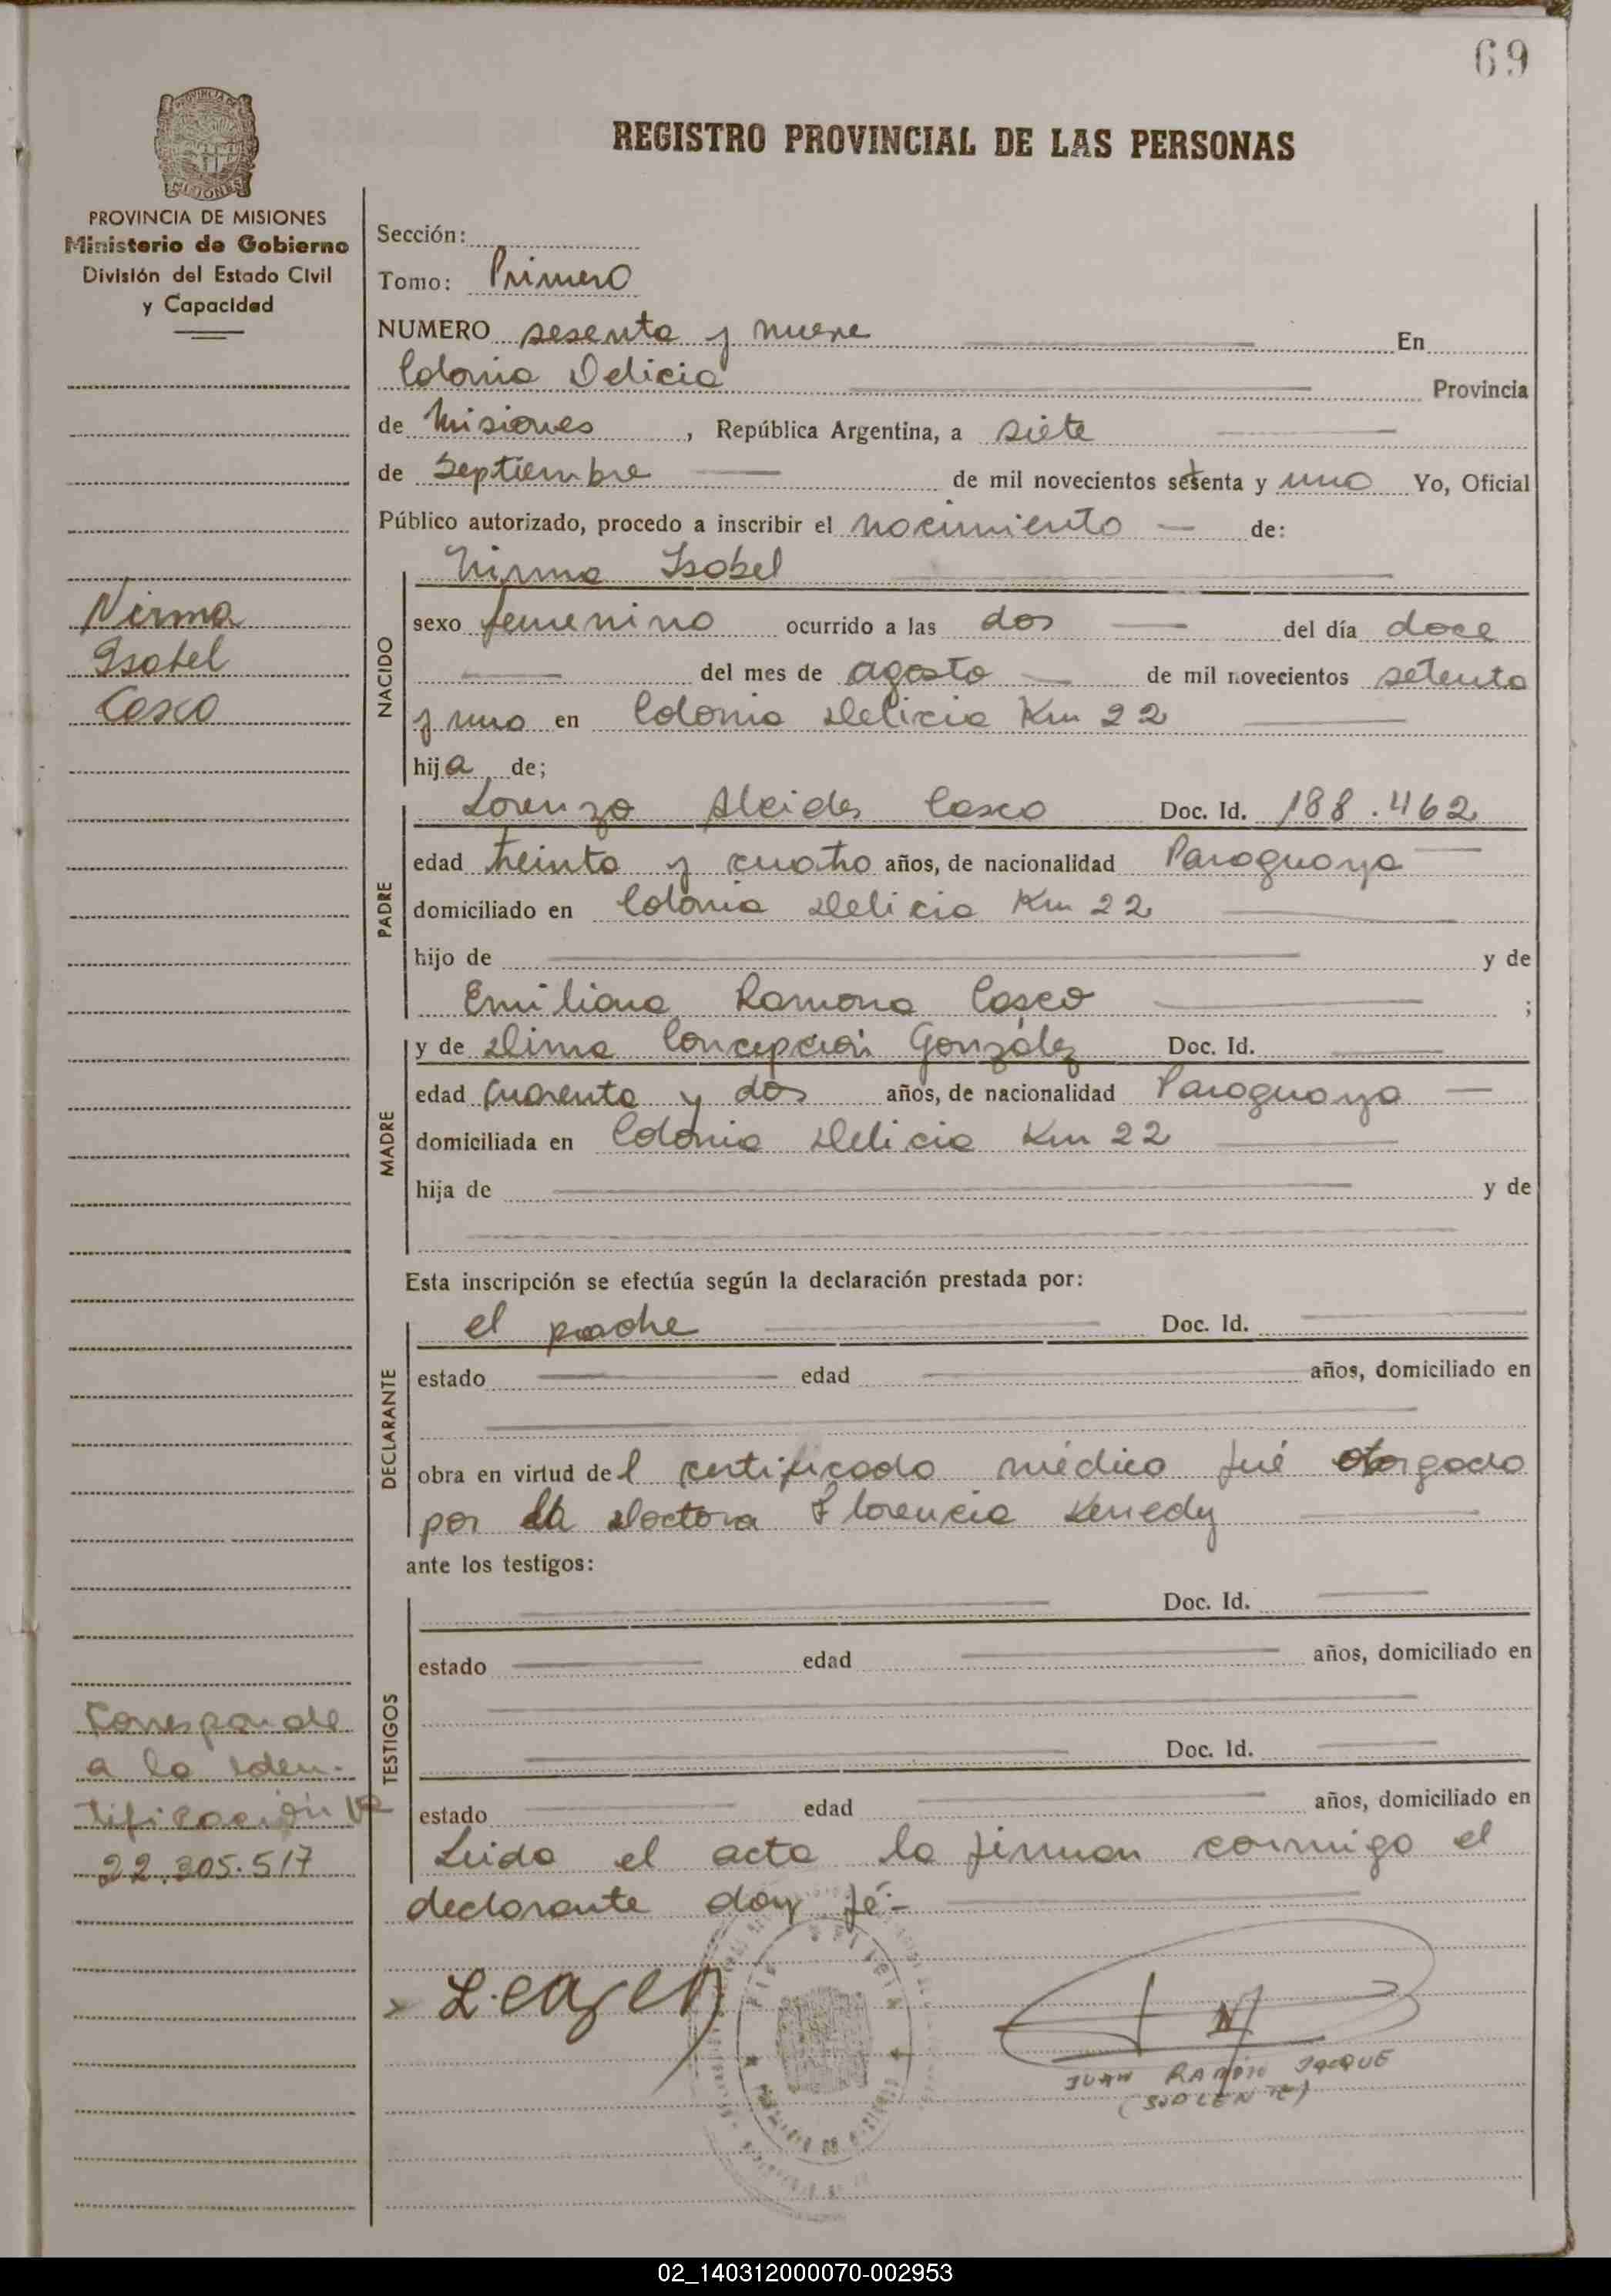 69
REGISTRO PROVINCIAL DE LAS PERSONAS
PROVINCIA DE MISIONES
Ministerio de Gobierno
División del Estado Civil
y Capacidad
Nirma
Isabel
Casco
Corresponde
a la Iden-
tificación Nº
22.305.517
Sección:
Tomo: Primero
NUMERO sesenta y nueve En
Colonia Delicia Provincia
de Misiones, República Argentina, a siete
de Septiembre de mil novecientos setenta y uno Yo, Oficial
Público autorizado, procedo a inscribir el nacimiento de:
Nirma Isabel
NACIDO
sexo femenino ocurrido a las dos del día doce
del mes de agosto de mil novecientos setenta
y uno en Colonia Delicia Km 22
hija de;
PADRE
Lorenzo Alcides Casco Doc. Id. 188.462
edad treinta y cuatro años, de nacionalidad Paraguaya
domiciliado en Colonia Delicia Km 22
hijo de y de
Emiliana Ramona Casco ;
MADRE
y de Dima Concepción González Doc. Id.
edad cuarenta y dos años, de nacionalidad Paraguaya
domiciliada en Colonia Delicia Km 22
hija de y de
Esta inscripción se efectúa según la declaración prestada por:
DECLARANTE
el padre Doc. Id.
estado edad años, domiciliado en
obra en virtud del certificado médico fué otorgado
por la Doctora Florencia Kenedy
ante los testigos:
TESTIGOS
Doc. Id.
estado edad años, domiciliado en
Doc. Id.
estado edad años, domiciliado en
Leida el acta la firman conmigo el
declarante doy fé.-
JUAN RAMON JACQUE
(SUPLENTE)
02_140312000070-002953